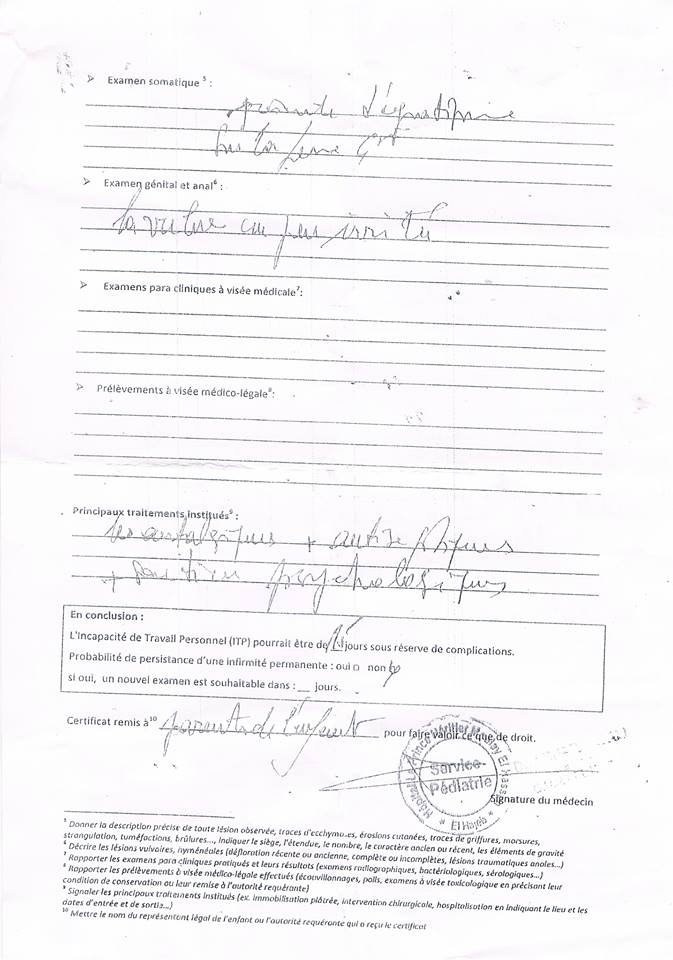 ➢ Examen somatique ⁵ :
➢ Examen génital et anal⁶ :
la vulve un peu irrité
➢ Examens para cliniques à visée médicale⁷:
➢ Prélèvements à visée médico-légale⁸:
Principaux traitements institués⁹ :
les antalgiques + antiseptiques
+ soutien psychologiques
En conclusion :
L'Incapacité de Travail Personnel (ITP) pourrait être de jours sous réserve de complications.
Probabilité de persistance d'une infirmité permanente : oui □ non
si oui, un nouvel examen est souhaitable dans : __ jours.
Certificat remis à¹⁰ parents de l'enfant pour faire valoir ce que de droit.
Hôpital Prince Moulay El Hassan
Service-
Pédiatrie
* El Hajeb *
Signature du médecin
⁵ Donner la description précise de toute lésion observée, traces d'ecchymoses, érosions cutanées, traces de griffures, morsures,
strangulation, tuméfactions, brûlures..., indiquer le siège, l'étendue, le nombre, le caractère ancien ou récent, les éléments de gravité
⁶ Décrire les lésions vulvaires, hyménéales (défloration récente ou ancienne, complète ou incomplètes, lésions traumatiques anales...)
⁷ Rapporter les examens para cliniques pratiqués et leurs résultats (examens radiographiques, bactériologiques, sérologiques...)
⁸ Rapporter les prélèvements à visée médico-légale effectués (écouvillonnages, poils, examens à visée toxicologique en précisant leur
condition de conservation ou leur remise à l'autorité requérante)
⁹ Signaler les principaux traitements institués (ex. immobilisation plâtrée, intervention chirurgicale, hospitalisation en indiquant le lieu et les
dates d'entrée et de sortie...)
¹⁰ Mettre le nom du représentant légal de l'enfant ou l'autorité requérante qui a reçu le certificat